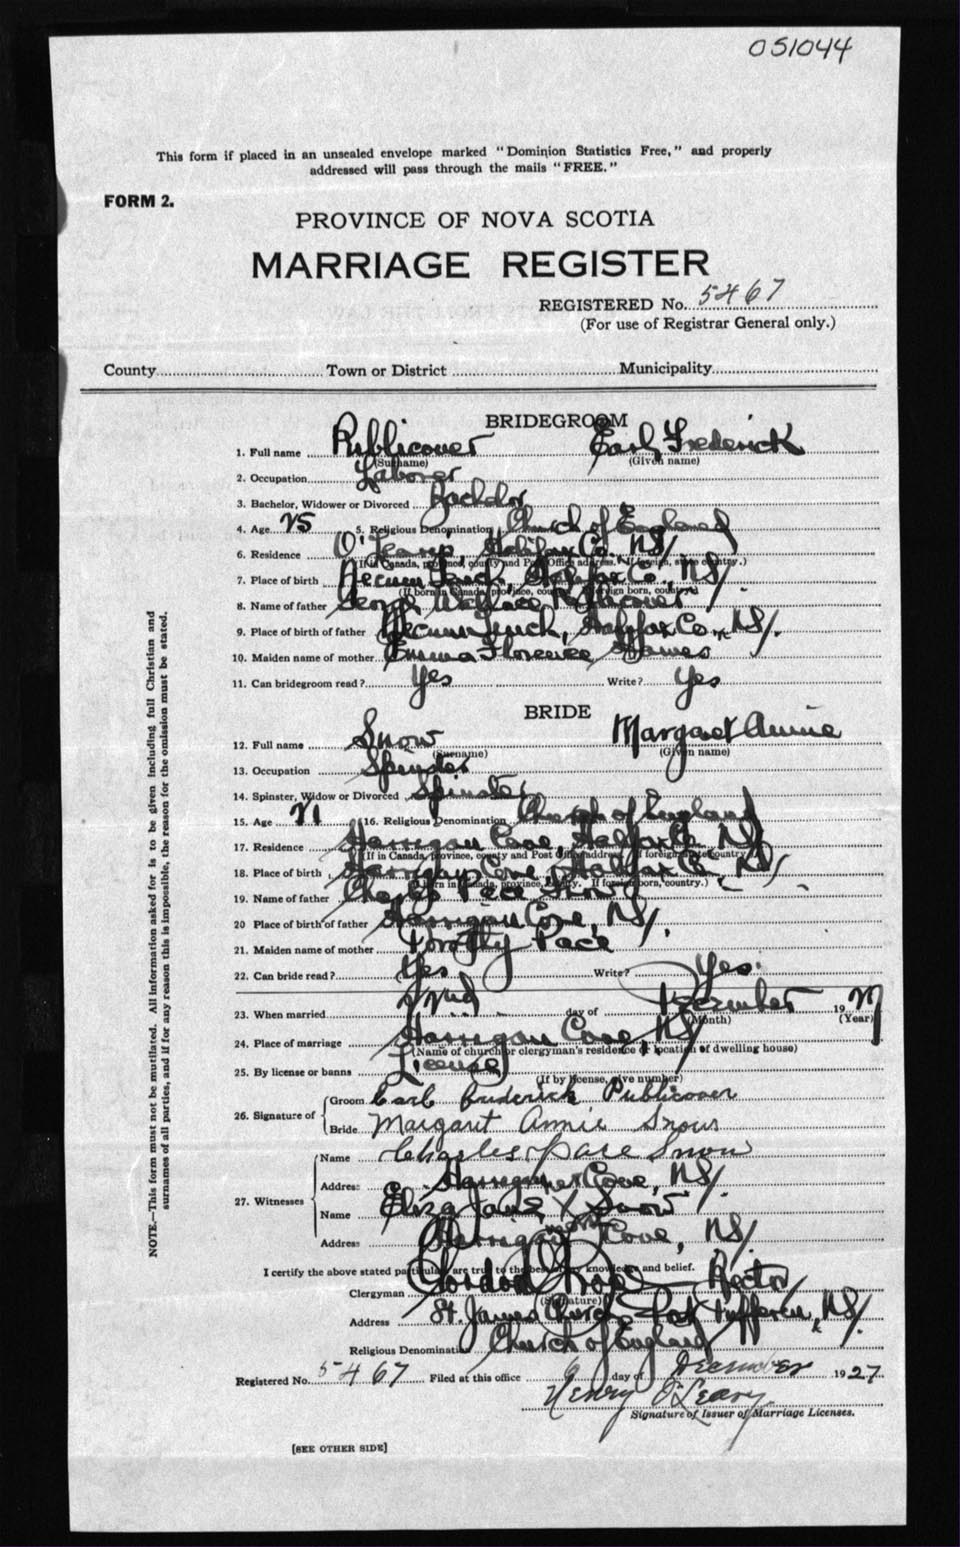 051044
This form if placed in an unsealed envelope marked "Dominion Statistics Free," and properly
addressed will pass through the mails "FREE."
FORM 2.
PROVINCE OF NOVA SCOTIA
MARRIAGE REGISTER
REGISTERED No. 5467
(For use of Registrar General only.)
County Town or District Municipality
BRIDEGROOM
1. Full name Publicover Earl Frederick
(Surname) (Given name)
2. Occupation Laborer
3. Bachelor, Widower or Divorced Bachelor
4. Age 25 5. Religious Denomination Church of England
6. Residence Halifax Co. NS/
(If in Canada, province, county and Post Office address. If foreign, state country.)
7. Place of birth Necum Teuch, Halifax Co., NS/
(If born in Canada, province, county. If foreign born, country)
8. Name of father George Wallace Publicover
9. Place of birth of father Necum Teuch, Halifax Co., NS/.
10. Maiden name of mother Emma Florence
11. Can bridegroom read? Yes Write? Yes
BRIDE
12. Full name Snow Margaret Annie
(Surname) (Given name)
13. Occupation Spinster
14. Spinster, Widow or Divorced Spinster
15. Age 21 16. Religious Denomination Church of England
17. Residence Harrigan Cove, Halifax Co. NS/
(If in Canada, province, county and Post Office address. If foreign, state country.)
18. Place of birth Harrigan Cove, Halifax Co. NS/
(If born in Canada, province, county. If foreign born, country.)
19. Name of father Charles Pace Snow
20 Place of birth of father Harrigan Cove, NS/.
21. Maiden name of mother Dorothy Pace
22. Can bride read? Yes Write? Yes
23. When married 22nd day of December 1927
(Month) (Year)
24. Place of marriage Harrigan Cove, NS/
(Name of church or clergyman's residence or location of dwelling house)
25. By license or banns License
(If by license, give number)
26. Signature of
Groom Earl Frederick Publicover
Bride Margaret Annie Snow
27. Witnesses
Name Charles Pace Snow
Address Harrigan Cove, NS/.
Name Eliza Jane X Snow
Address Harrigan Cove, NS/.
I certify the above stated particulars are true to the best of my knowledge and belief.
Clergyman Gordon Rector
(Signature)
Address St. James Church Port Dufferin, NS/.
Religious Denomination Church of England
Registered No. 5467 Filed at this office 6 day of December 1927
Henry O'Leary
Signature of Issuer of Marriage Licenses.
[SEE OTHER SIDE]
NOTE.—This form must not be mutilated. All information asked for is to be given including full Christian and
surnames of all parties, and if for any reason this is impossible, the reason for the omission must be stated.